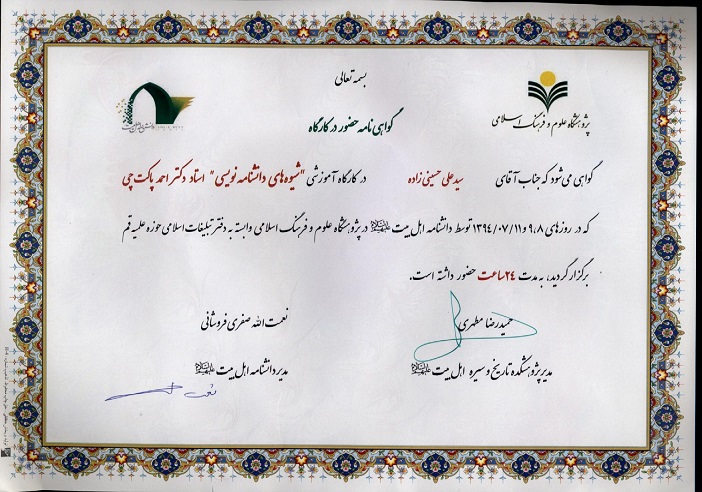 بسمه تعالی
گواهی نامه حضور در کارگاه
پژوهشگاه علوم و فرهنگ اسلامی
گواهی می‌شود که جناب آقای سید علی حسینی زاده در کارگاه آموزشی "شیوه‌های دانشنامه نویسی" استاد دکتر احمد پاکت‌چی
که در روزهای ۸، ۹ و ۱۳۹۴/۰۷/۱۱ توسط دانشنامه اهل بیت در پژوهشگاه علوم و فرهنگ اسلامی وابسته به دفتر تبلیغات اسلامی حوزه علمیه قم
برگزار گردید، به مدت ۲۴ ساعت حضور داشته است.
حمیدرضا مطهری
مدیر پژوهشکده تاریخ و سیره اهل بیت
نعمت الله صفری فروشانی
مدیر دانشنامه اهل بیت